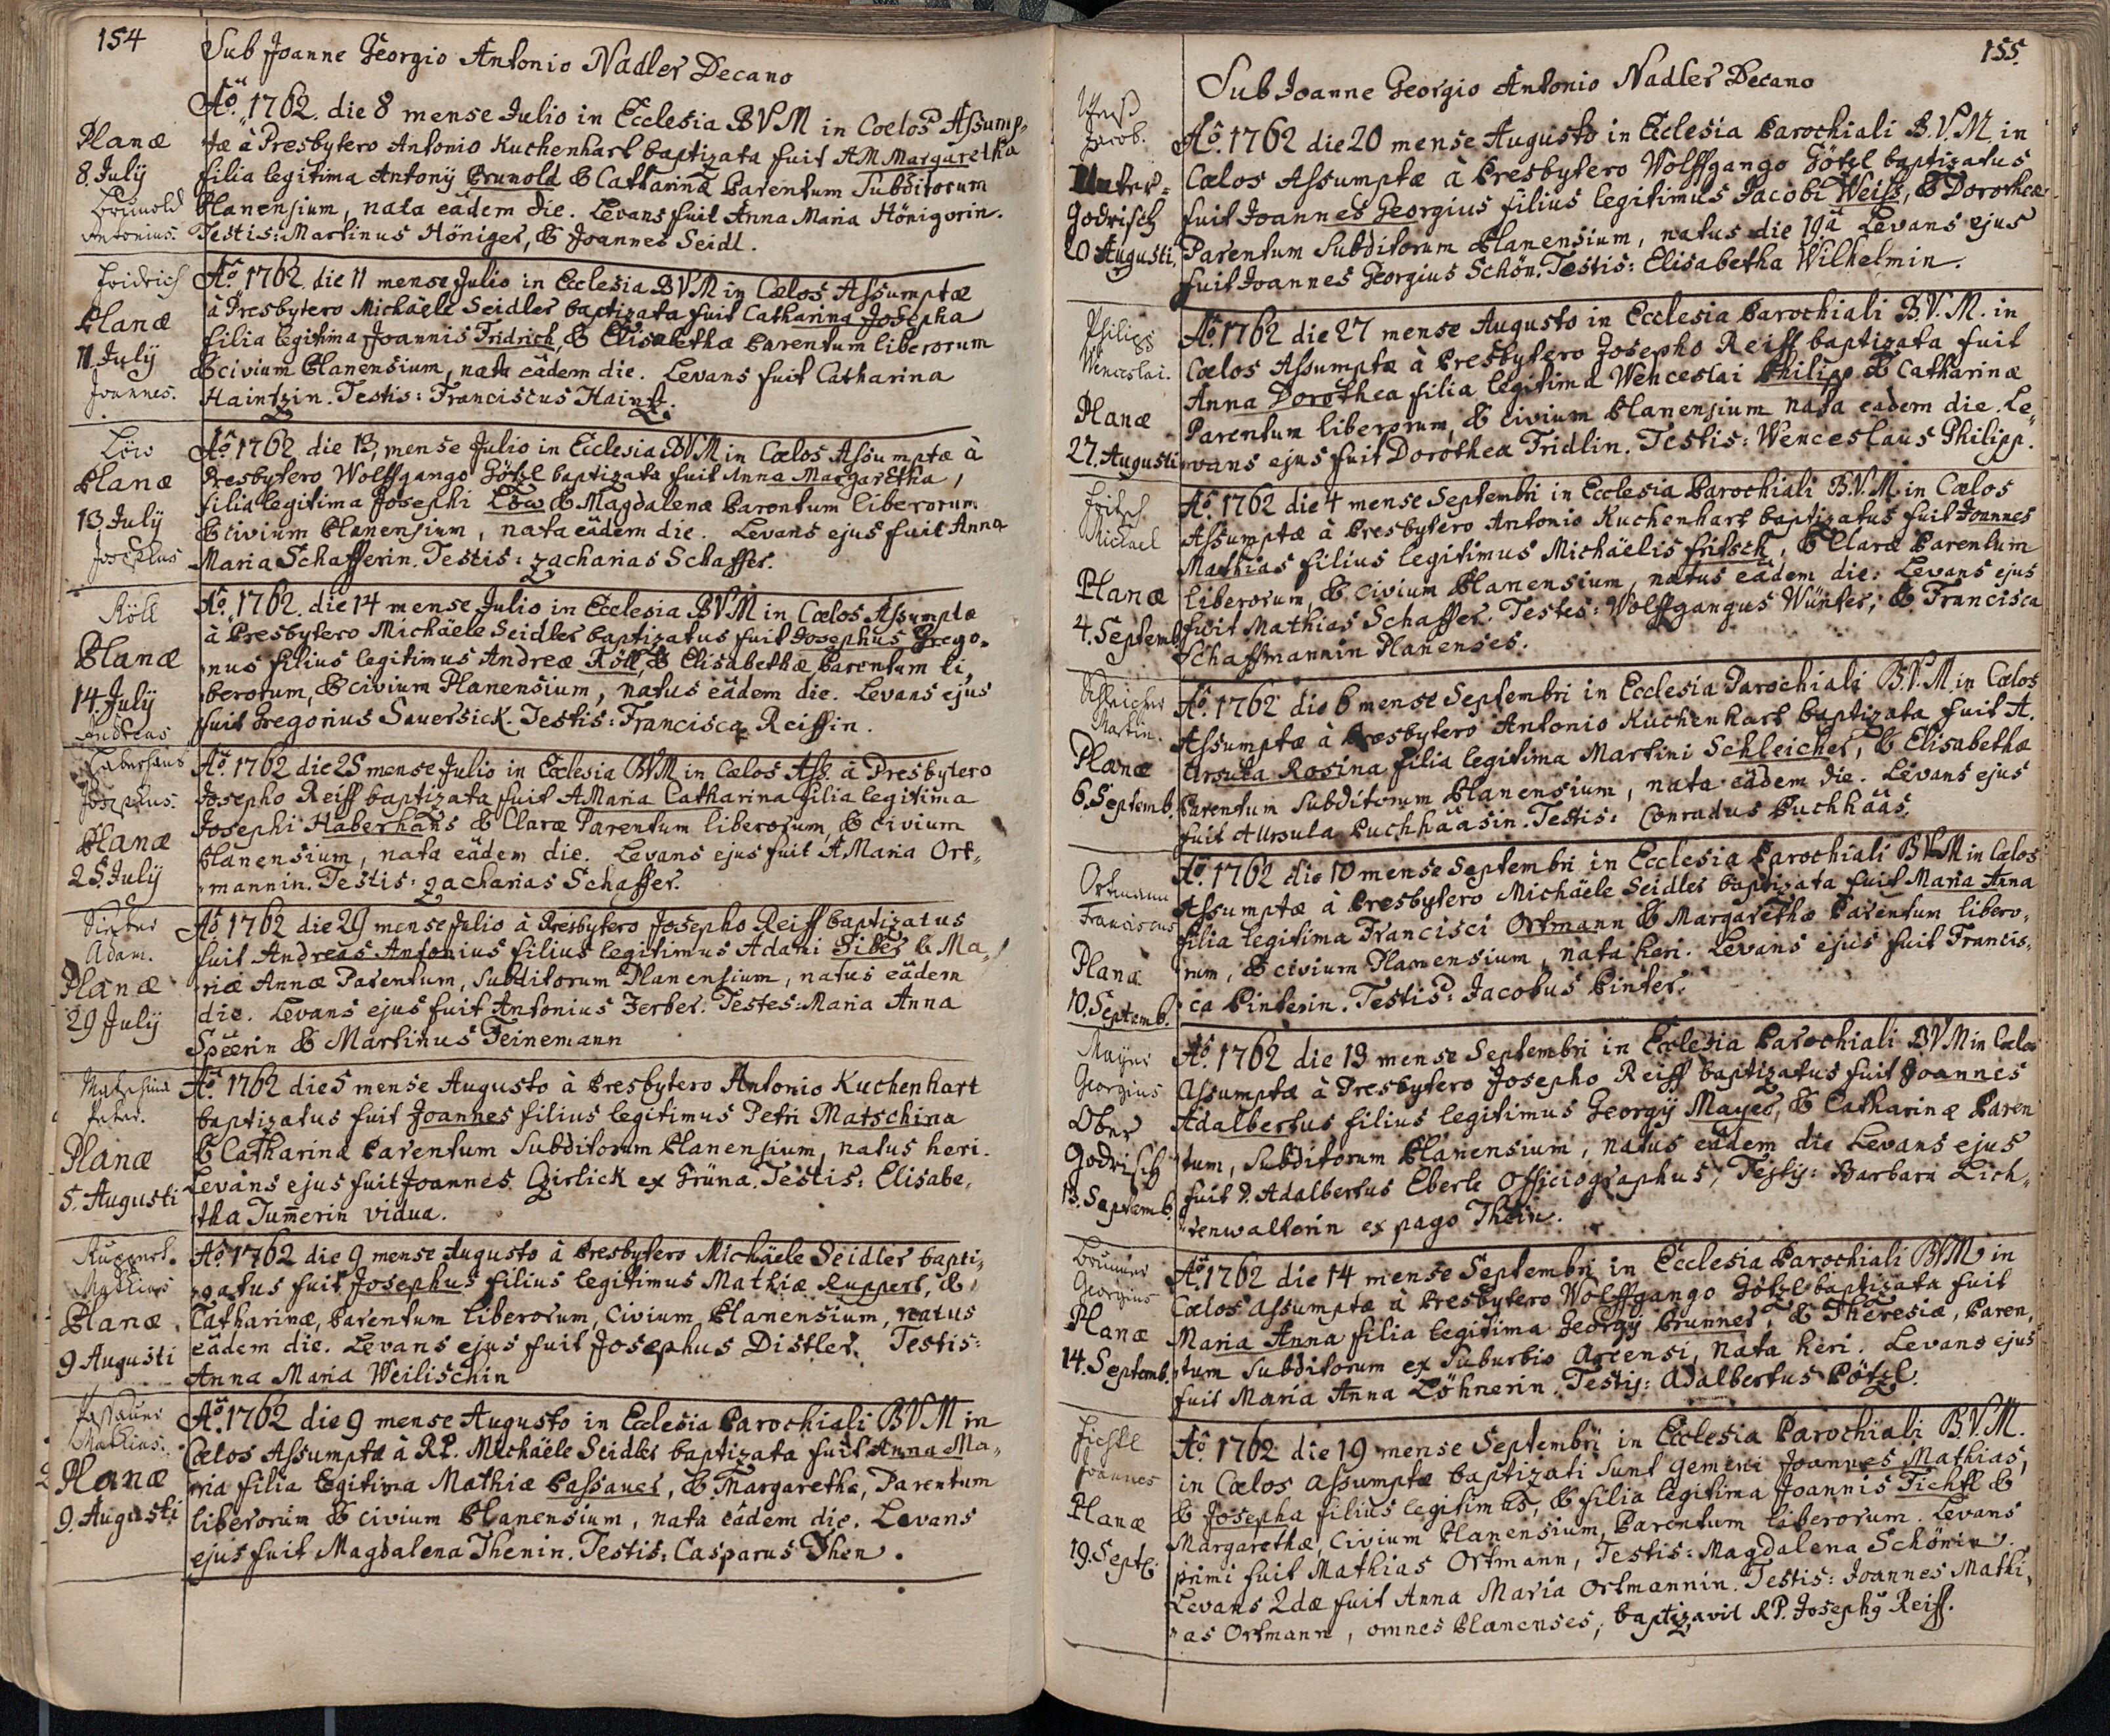 154
Sub Joanne Georgio Antonio Nadler Decano
Planæ
8. July
Brunold
Antonius.
Aº. 1762. die 8 mense Julio in Ecclesia BVM in Coelos Assump„
tæ à Presbytero Antonio Kuchenhart baptizata fuit AM Margaretha
filia legitima Antonÿ Brunold & Catharinæ Parentum Subditorum
Planensium, nata eâdem die. Levans fuit Anna Maria Hönigorin.
Testis: Martinus Höniger, & Joannes Seidl.
Fridrich
Planæ
11. July
Joannes.
Aº. 1762. die 11 mense Julio in Ecclesia BVM in Cœlos Assumptæ
à Presbytero Michäele Seidler baptizata fuit Catharina Josepha
filia legitima Joannis Fridrich, & Elisabethæ Parentum liberorum
& civium Planensium, nata eâdem die. Levans fuit Catharina
Haintzin. Testis: Franciscus Haintz.
Löw
Planæ
13 July
Josephus
Aº. 1762 die 13, mense Julio in Ecclesia BVM in Cœlos Assumptæ à
Presbytero Wolffgango Götzl baptizata fuit Anna Margaretha,
filia legitima Josephi Löw & Magdalenæ Parentum liberorum
& civium Planensium, nata eâdem die. Levans ejus fuit Anna
Maria Schafferin. Testis: Zacharias Schaffer.
Röll
Planæ
14. July
Andreas
Aº. 1762. die 14 mense Julio in Ecclesia BVM in Cœlos Assumptæ
à Presbytero Michäele Seidler baptizatus fuit Josephus Grego„
„nus filius legitimus Andreæ Röll, & Elisabethæ Parentum li„
berorum, & civium Planensium, natus eâdem die. Levans ejus
fuit Gregorius Sauersick. Testis: Francisca Reiffin.
Haberhans
Josephus.
Planæ
25. July
Aº. 1762 die 25 mense Julio in Ecclesia BVM in Cælos Ass. à Presbytero
Josepho Reiff baptizata fuit AMaria Catharina filia legitima
Josephi Haberhans & Claræ Parentum liberorum, & civium
Planensium, nata eâdem die. Levans ejus fuit AMaria Ort„
„mannin. Testis: Zacharias Schaffer.
Adam.
Planæ
29 July
Aº. 1762 die 29 mense Julio à Presbytero Josepho Reiff baptizatus
fuit Andreas Antonius filius legitimus Adami Siber & Ma„
„riæ Annæ Parentum, Subditorum Planensium, natus eâdem
die. Levans ejus fuit Antonius Zerber. Testes: Maria Anna
Speerin & Martinus Feinemann
Matschina
Peter.
Planæ
5. Augusti
Aº. 1762 die 5 mense Augusto à Presbytero Antonio Kuchenhart
baptizatus fuit Joannes filius legitimus Petri Matschina
& Catharinæ Parentum Subditorum Planensium, natus heri.
Levans ejus fuit Joannes Girlick ex Grüna. Testis: Elisabe„
„tha Tum̄erin vidua.
Ruppert.
Mathias
Planæ
9 Augusti
Aº. 1762 die 9 mense Augusto à Presbytero Michäele Seidler bapti„
„zatus fuit Josephus filius legitimus Mathiæ Ruppert, &
Catharinæ, Parentum liberorum, civium Planensium, natus
eâdem die. Levans ejus fuit Josephus Distler. Testis:
Anna Maria Weilischin
Passauer
Mathias.
Planæ
9. Augusti
Aº. 1762 die 9 mense Augusto in Ecclesia Parochiali BVM in
Cœlos Assumptæ à RP. Michäele Seidler baptizata fuit Anna Ma„
„ria filia legitima Mathiæ Passauer, & Margarethæ, Parentum
liberorum & civium Planensium, nata eâdem die. Levans
ejus fuit Magdalena Thenin. Testis: Casparus Then.
155.
Sub Joanne Georgio Antonio Nadler Decano
Weiß
Jacob.
Unter=
Godrisch
20 Augusti.
Aº. 1762 die 20 mense Augusto in Ecclesia Parochiali B.V.M in
Cœlos Assumptæ à Presbytero Wolffgango Götzl baptizatus
fuit Joannes Georgius filius legitimus Jacobi Weiss, & Dorotheæ
Parentum Subditorum Planensium, natus die 19â Levans ejus
fuit Joannes Georgius Schön. Testis: Elisabetha Wilhelmin.
Philipp
Wenceslai.
Planæ
27. Augusti
Aº. 1762 die 27 mense Augusto in Ecclesia Parochiali B.V.M. in
Cœlos Assumptæ à Presbytero Josepho Reiff baptizata fuit
Anna Dorothea filia legitima Wenceslai Philipp & Catharinæ
Parentum liberorum, & civium Planensium nata eadem die. Le„
„vans ejus fuit Dorothea Fridlin. Testis: Wenceslaus Philipp.
Fritsch
Michael
Planæ
4. Septemb.
Aº. 1762 die 4 mense Septembri in Ecclesia Parochiali B.V.M. in Cœlos
Assumptæ à Presbytero Antonio Kuchenhart baptizatus fuit Joannes
Mathias filius legitimus Michäelis Fritsch, & Claræ Parentum
liberorum, & civium Planensium, natus eâdem die: Levans ejus
fuit Mathias Schaffer. Testes: Wolffgangus Wünter, & Francisca
Schaffmannin Planenses.
Schleicher
Martin.
Planæ
6. Septemb.
Aº. 1762 die 6 mense Septembri in Ecclesia Parochiali B.V.M. in Cœlos
Assumptæ à Presbytero Antonio Kuchenhart baptizata fuit A.
Ursula Rosina filia legitima Martini Schleicher, & Elisabethæ
Parentum Subditorum Planensium, nata eâdem die. Levans ejus
fuit A Ursula Puchhaasin. Testis: Conradus Puchhaas.
Ortmann
Franciscus
Planæ
10. Septemb.
Aº. 1762 die 10 mense Septembri in Ecclesia Parochiali BVM in Cælos
Assumptæ à Presbytero Michäele Seidler baptizata fuit Maria Anna
filia legitima Francisci Ortmann & Margarethæ Parentum libero„
rum, & civium Planensium, nata heri. Levans ejus fuit Francis„
ca Pinterin. Testis: Jacobus Pinter.
Mayer
Georgius
Ober
Godrisch
13. Septemb.
Aº. 1762 die 13 mense Septembri in Ecclesia Parochiali BVM in Cælos
Assumptæ à Presbytero Josepho Reiff baptizatus fuit Joannes
Adalbertus filius legitimus Georgÿ Mayer, & Catharinæ Paren
tum, Subditorum Planensium, natus eâdem die Levans ejus
fuit D. Adalbertus Eberle Officiographus, Testis: Barbara Lich„
„tenwalterin ex pago Thein.
Brunner
Georgius
Planæ
14. Septemb.
Aº. 1762 die 14 mense Septembri in Ecclesia Parochiali BVM in
Cœlos assumptæ à Presbytero Wolffgango Götzl baptizata fuit
Maria Anna filia legitima Georgÿ Brunner, & Theresiæ, Paren„
tum Subditorum ex Suburbio Arcensi, nata heri. Levans ejus
fuit Maria Anna Löhnerin. Testis: Adalbertus Pötzl.
Fichtl
Joannes
Planæ
19. Septe.
Aº. 1762 die 19 mense Septembri in Ecclesia Parochiali B.V.M.
in Cœlos assumptæ baptizati sunt gemini Joannes Mathias,
& Josepha filius legitimus, & filia legitima Joannis Fichtl &
Margarethæ, Civium Planensium, Parentum liberorum. Levans
primi fuit Mathias Ortmann, Testis: Magdalena Schönin.
Levans 2dæ fuit Anna Maria Ortmannin. Testis: Joannes Mathi„
„as Ortmann, omnes Planenses, baptizavit RP. Josephg Reiff.